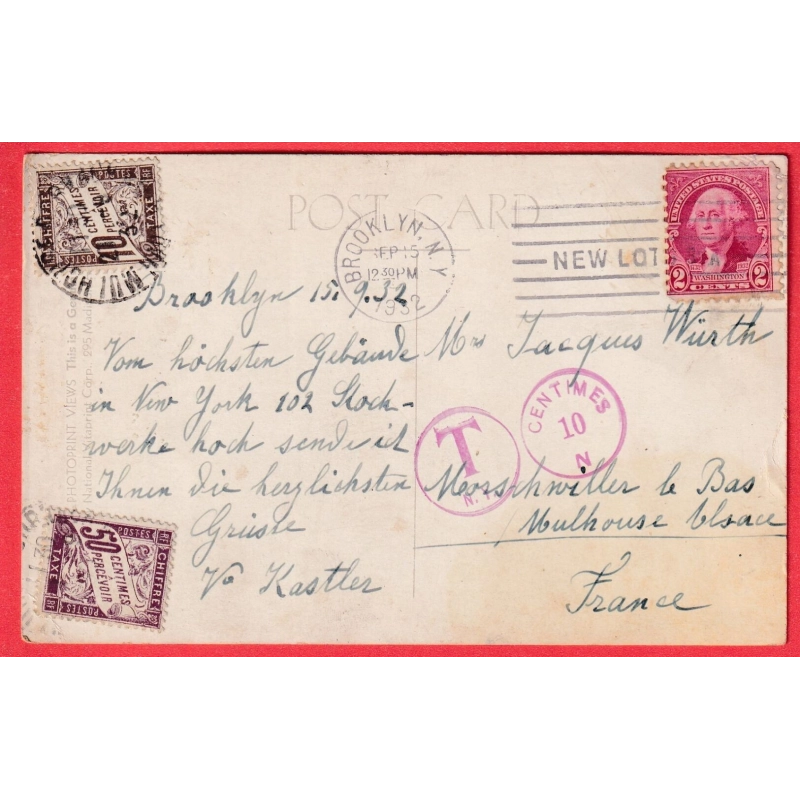 POST CARD
BROOKLYN, N.Y.
SEP 15
12 30 PM
1932
NEW LOT
UNITED STATES POSTAGE
WASHINGTON
2 CENTS 2
CHIFFRE TAXE
POSTES RF
10 CENTIMES
PERCEVOIR
POSTES
MULHOUSE
Brooklyn 15.9.32
Vom höchsten Gebäude
in New York 102 Stock-
werke hoch sende ich
Ihnen die herzlichsten
Grüsse
Kastler
Mrs Jacques Würth
Morschwiller le Bas
Mulhouse Alsace
France
T
N.Y.
CENTIMES
10
N
PHOTOPRINT VIEWS This is a
National Corp. 295 Mad
CHIFFRE TAXE
POSTES RF
50 CENTIMES
PERCEVOIR
POSTES RF